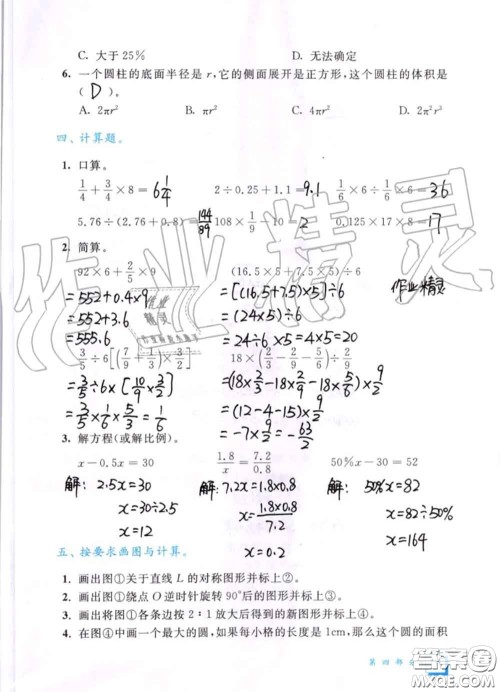 C. 大于 25%    D. 无法确定
6. 一个圆柱的底面半径是 r，它的侧面展开是正方形，这个圆柱的体积是
（ D ）。
A. 2πr²    B. πr²    C. 4πr²    D. 2π²r³
四、计算题。
1. 口算。
1/4 + 3/4 × 8 = 6 1/4    2 ÷ 0.25 + 1.1 = 9.1    1/6 × 6 ÷ 1/6 × 6 = 36
5.76 ÷ (2.76 + 0.8) = 144/89    108 × 1/9 − 10 = 2    0.125 × 17 × 8 = 17
2. 简算。
92 × 6 + 2/5 × 9    (16.5 × 5 + 7.5 × 5) ÷ 6
= 552 + 0.4×9    = [(16.5+7.5)×5] ÷ 6    作业精灵
= 552 + 3.6    = (24×5) ÷ 6
= 555.6    = 24÷6×5 = 4×5 = 20
3/5 ÷ 6 [(7/9 + 1/3) × 3/2]    18 × (2/3 − 2/9 − 5/6) ÷ 2/9
= 3/5 ÷ 6 × [10/9 × 3/2]    = (18×2/3 − 18×2/9 − 18×5/6) × 9/2
= 3/5 × 1/6 × 5/3 = 1/6    = (12−4−15) × 9/2
= −7 × 9/2 = −63/2
3. 解方程(或解比例)。
x − 0.5x = 30    1.8/x = 7.2/0.8    50%x − 30 = 52
解: 2.5x = 30    解: 7.2x = 1.8×0.8    解: 50%x = 82
x = 30÷2.5    x = 1.8×0.8/7.2    x = 82÷50%
x = 12    x = 0.2    x = 164
五、按要求画图与计算。
1. 画出图①关于直线 L 的对称图形并标上②。
2. 画出图①绕点 O 逆时针旋转 90°后的图形并标上③。
3. 画出将图①各条边按 2∶1 放大后得到的新图形并标上④。
4. 在图④中画一个最大的圆，如果每小格的长度是 1cm，那么这个圆的面积
第四部分
作业精灵
作业
精灵
答案圈
MXQE.COM